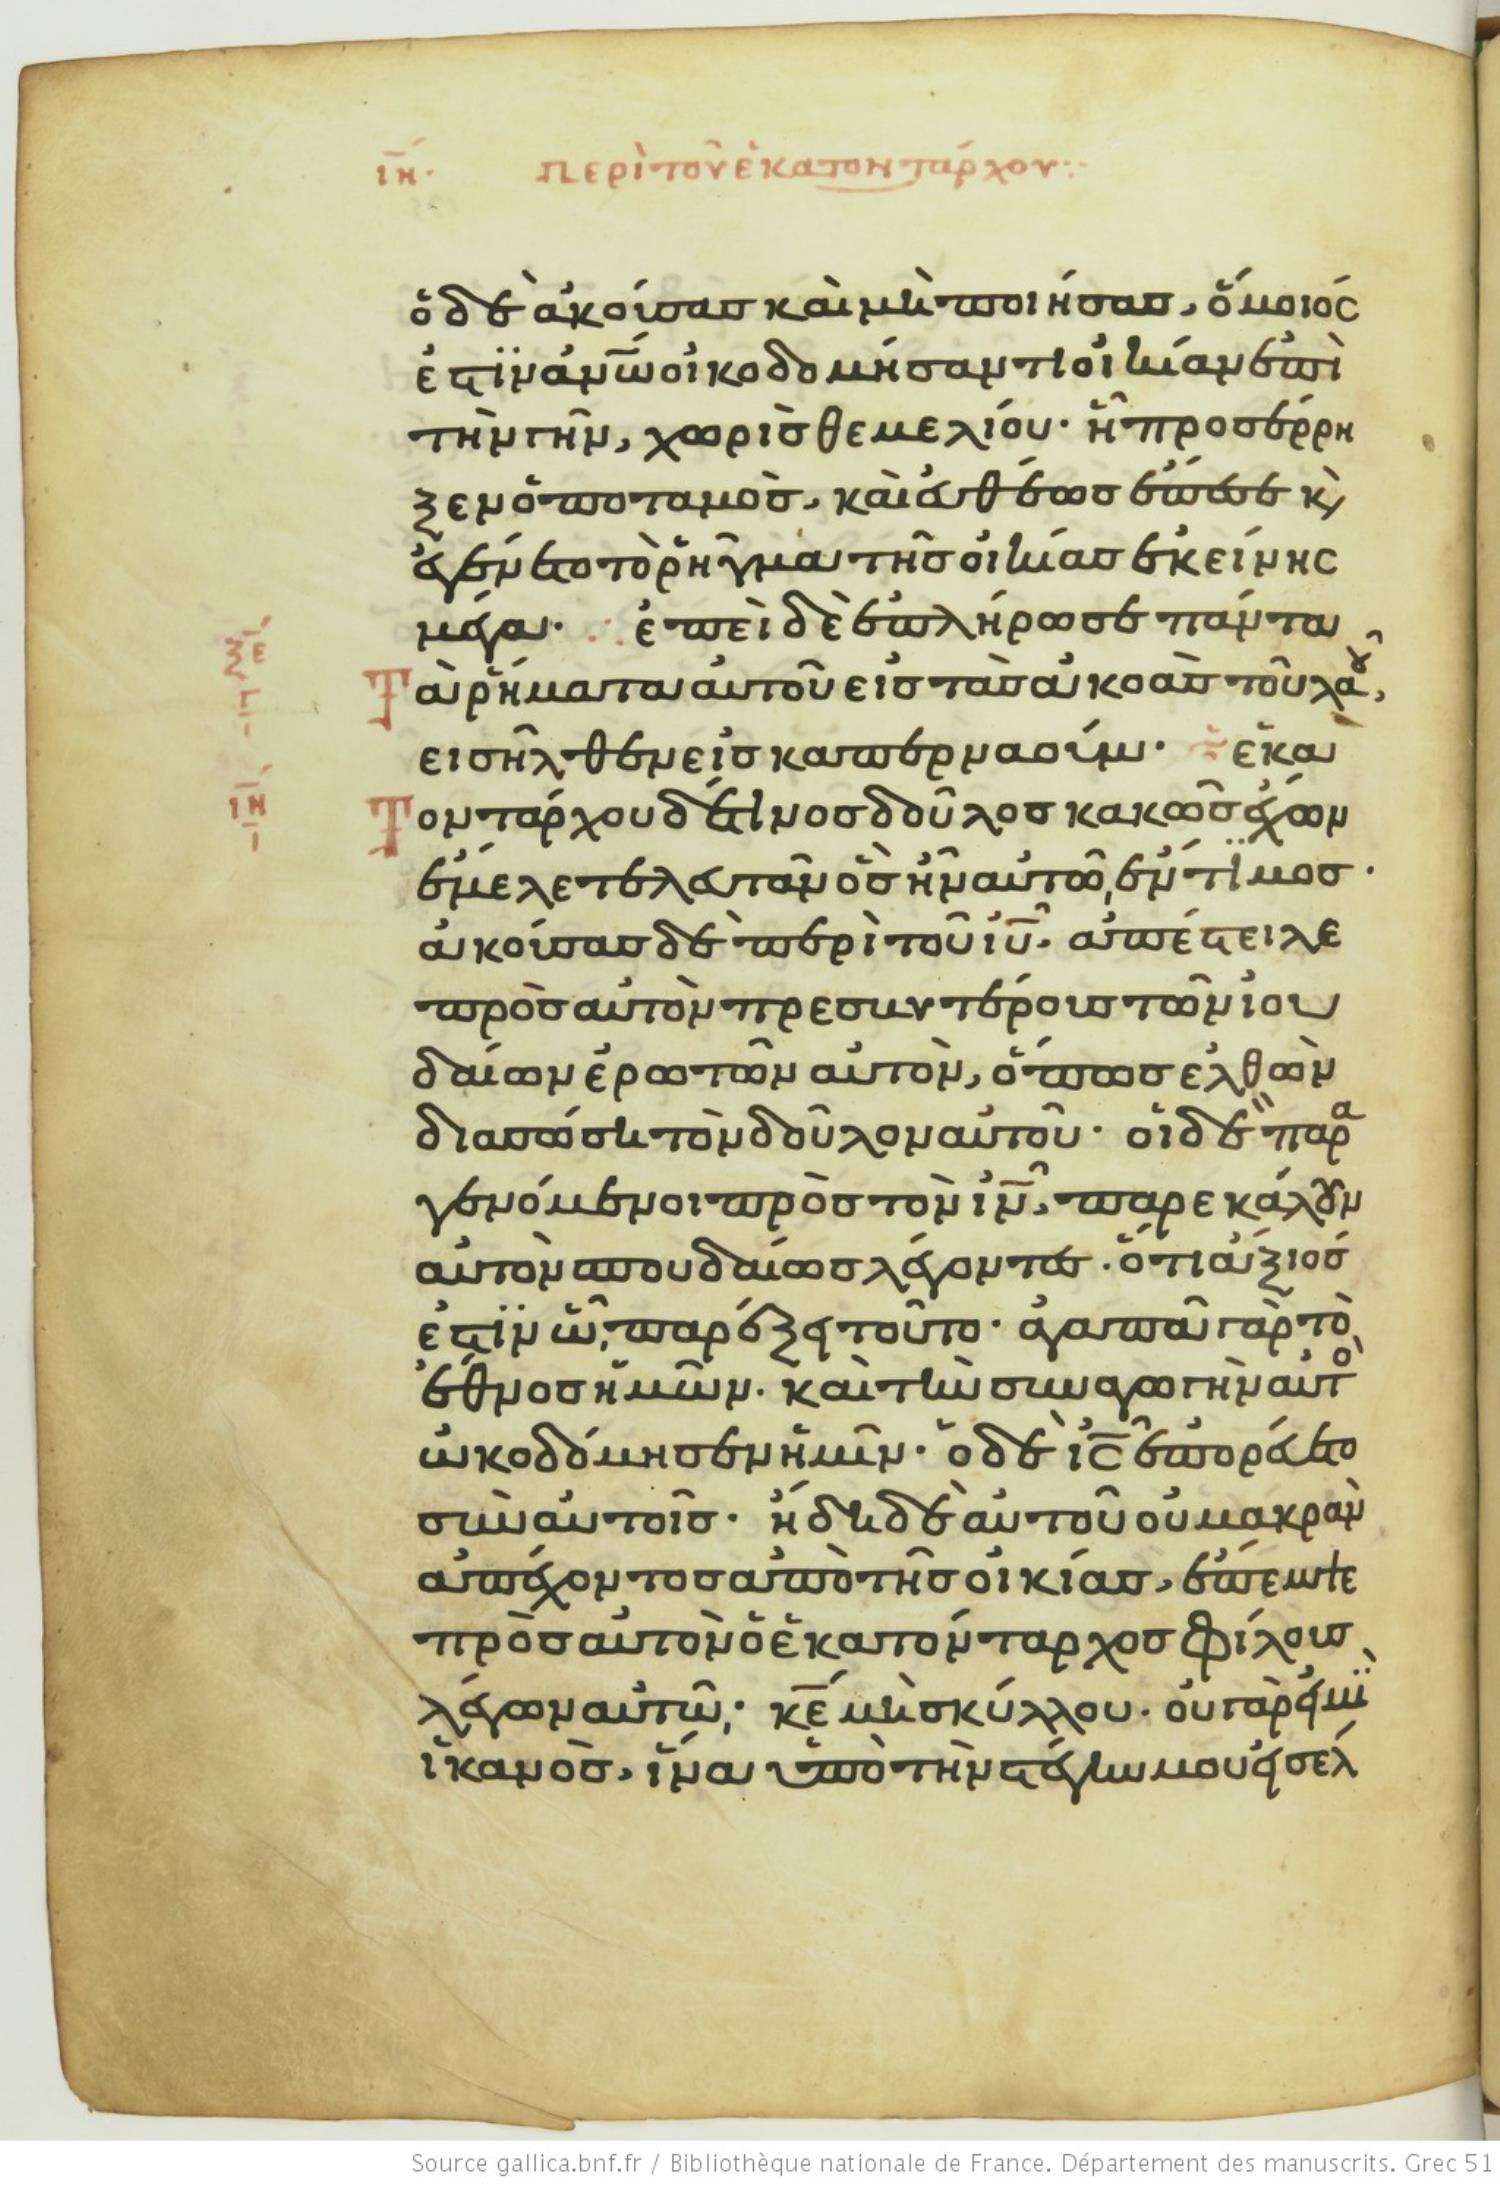 ιη· περὶ τοῦ ἑκατοντάρχου:
ὁ δὲ ἀκούσας καὶ μὴ ποιήσας, ὅμοιός
ἐστϊν ἀν̅ω̅ οἰκοδομήσαντι οἰκίαν ἐπὶ
τὴν γῆν, χωρὶς θεμελίου· ἧ προσέρρη
ξεν ὁ ποταμὸς, καὶ εὐθέως ἔπεσε κ̀
ἐγένετο τὸ ῥῆγμα τῆς οἰκίας ἐκείνης
μέγα· ἐπεὶ δὲ ἐπλήρωσε πάντα
ξε γ Τὰ ῥήματα αὐτοῦ εἰς τὰς ἀκοὰς τοῦ λαοῦ,
εισῆλθεν εἰς καπερναούμ· ἑκα
ιη Τοντάρχου δέ τινος δοῦλος κακῶς ἔχων
ἔμελε τελευτᾶν ὃς ἦν αὐτῶ, ἔντϊμος·
ἀκούσας δὲ περὶ τοῦ ι̅υ̅· ἀπέστειλε
πρὸς αὐτὸν πρεσυντέρους τῶν ἰου
δαίων ἐρωτῶν αὐτὸν, ὅπως ἐλθὼν
διασώση τὸν δοῦλον αὐτοῦ· οἱ δὲ παρα
γενόμενοι πρὸς τὸν ι̅ν̅, παρεκάλουν
αὐτὸν σπουδαίως λέγοντες· ὅτι ἄξιός
ἐστϊν ὧ, παρέξει τοῦτο· ἀγαπᾶ γὰρ τὸ
ἔθνος ἡμῶν· καὶ τὴν συναγωγὴν αὐτὸ
ὠκοδόμησεν ἡμῖν· ὁ δὲ ι̅ς̅ ἐπορεύετο
σὺν αὐτοῖς· ἤδη δὲ αὐτοῦ οὐ μακρὰν
ἀπέχοντος ἀπὸ τῆς οἰκίας, ἔπεμψε
πρὸς αὐτὸν ὁ ἑκατόνταρχος φίλους
λέγων αὐτῶ, κ̅ε̅ μὴ σκύλλου· οὐ γὰρ εἰμῒ
ἱκανὸς, ἵνα ὑπὸ τὴν στέγην μου εἰσέλ
Source gallica.bnf.fr / Bibliothèque nationale de France. Département des manuscrits. Grec 51